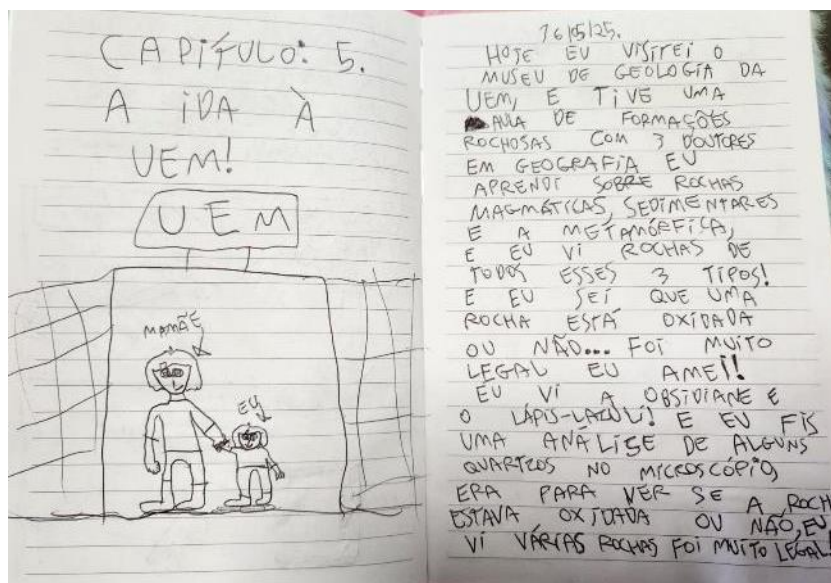 CAPÍTULO: 5.
A IDA À
UEM!
UEM
MAMÃE
EU
16/05/25.
HOJE EU VISITEI O
MUSEU DE GEOLOGIA DA
UEM, E TIVE UMA
AULA DE FORMAÇÕES
ROCHOSAS COM 3 DOUTORES
EM GEOGRAFIA EU
APRENDI SOBRE ROCHAS
MAGMÁTICAS, SEDIMENTARES
E A METAMÓRFICA,
E EU VI ROCHAS DE
TODOS ESSES 3 TIPOS!
E EU SEI QUE UMA
ROCHA ESTÁ OXIDADA
OU NÃO... FOI MUITO
LEGAL EU AMEI!!
EU VI A OBSIDIANE E
O LÁPIS-LAZULI! E EU FIS
UMA ANÁLISE DE ALGUNS
QUARTZOS NO MICROSCÓPIO,
ERA PARA VER SE A ROCH
ESTAVA OXIDADA OU NÃO, EU
VI VÁRIAS ROCHAS FOI MUITO LEGAL!